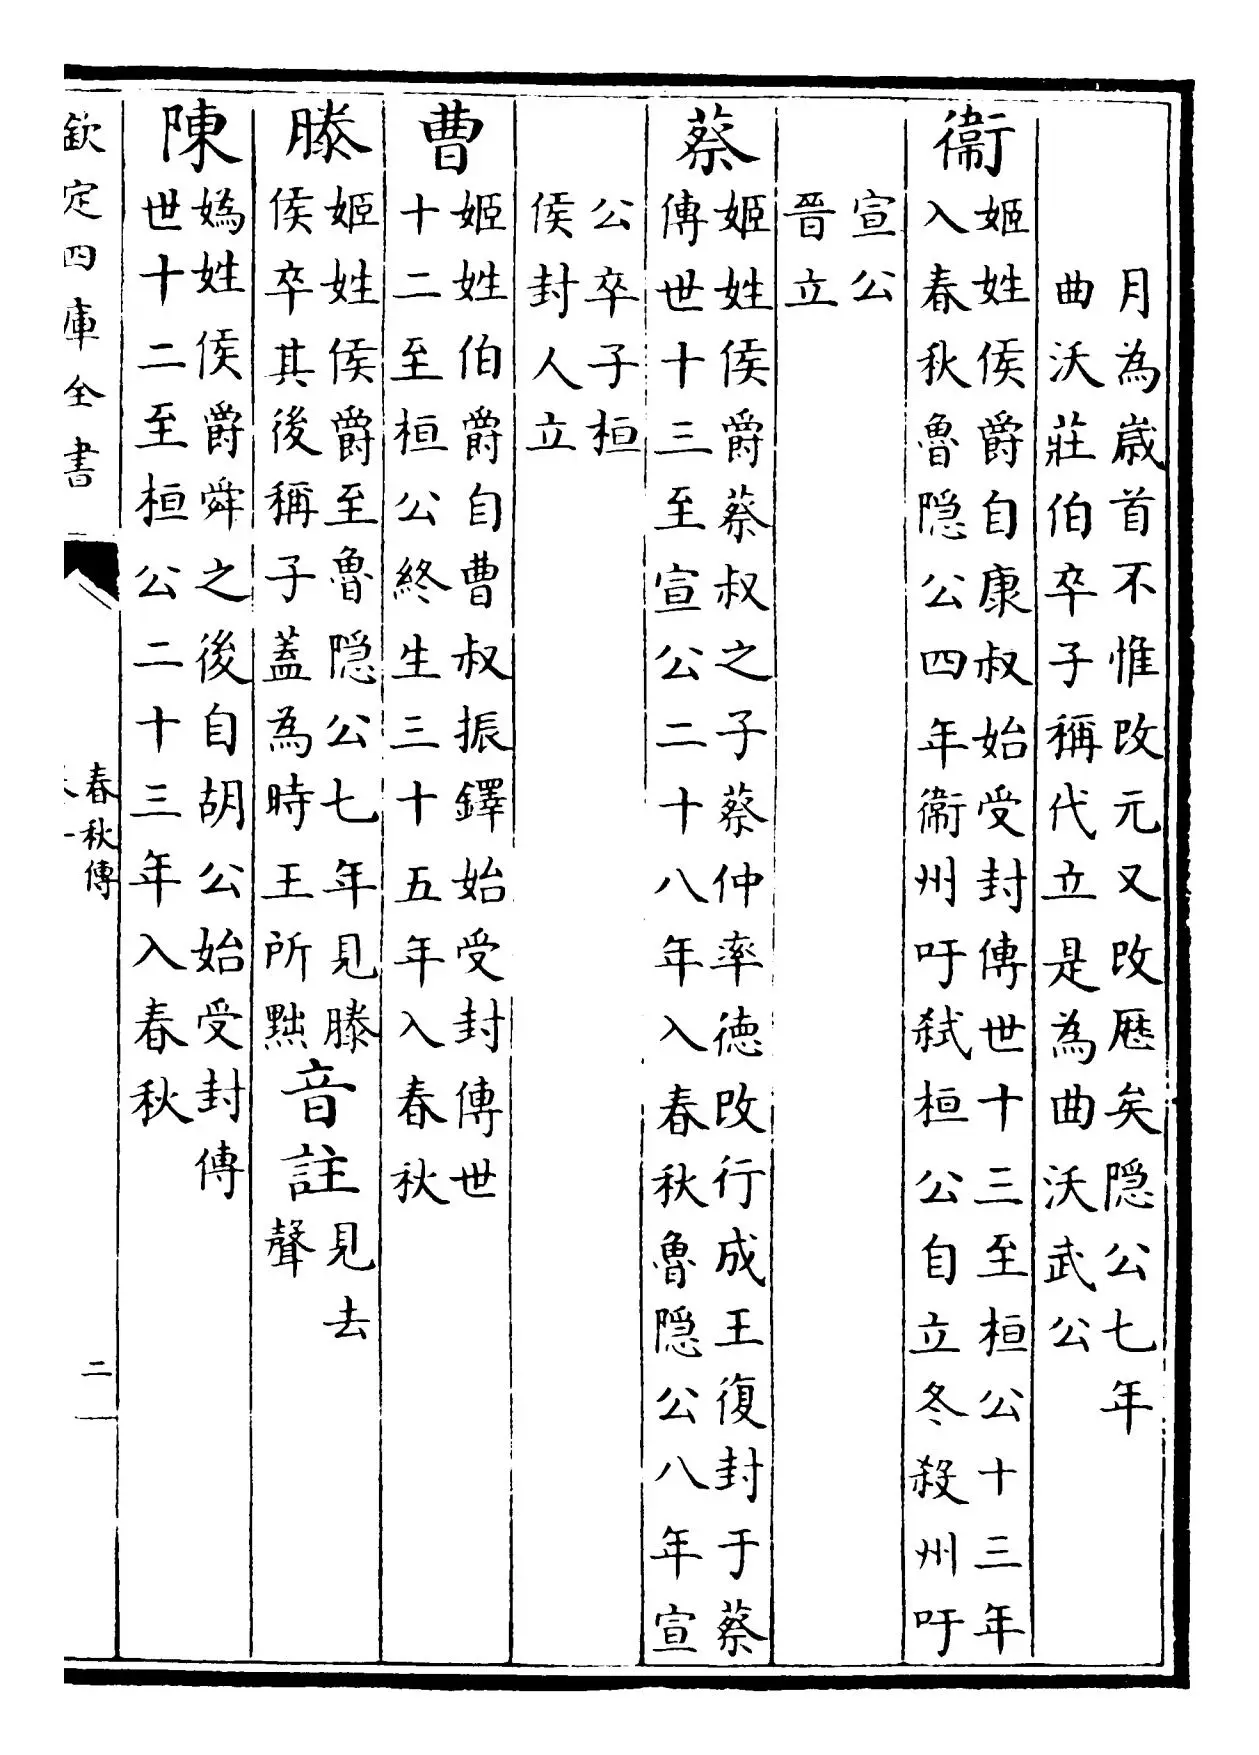 月為歲首不惟改元又改歷矣隠公七年
曲沃莊伯卒子稱代立是為曲沃武公
衞
姬姓侯爵自康叔始受封傳世十三至桓公十三年
入春秋魯隠公四年衞州吁弑桓公自立冬殺州吁
宣公
晉立
蔡
姬姓侯爵蔡叔之子蔡仲率徳改行成王復封于蔡
傳世十三至宣公二十八年入春秋魯隠公八年宣
公卒子桓
侯封人立
曹
姬姓伯爵自曹叔振鐸始受封傳世
十二至桓公終生三十五年入春秋
滕
姬姓侯爵至魯隠公七年見滕
侯卒其後稱子蓋為時王所黜
音註
見去
聲
陳
媯姓侯爵舜之後自胡公始受封傳
世十二至桓公二十三年入春秋
欽定四庫全書
春秋傳
二